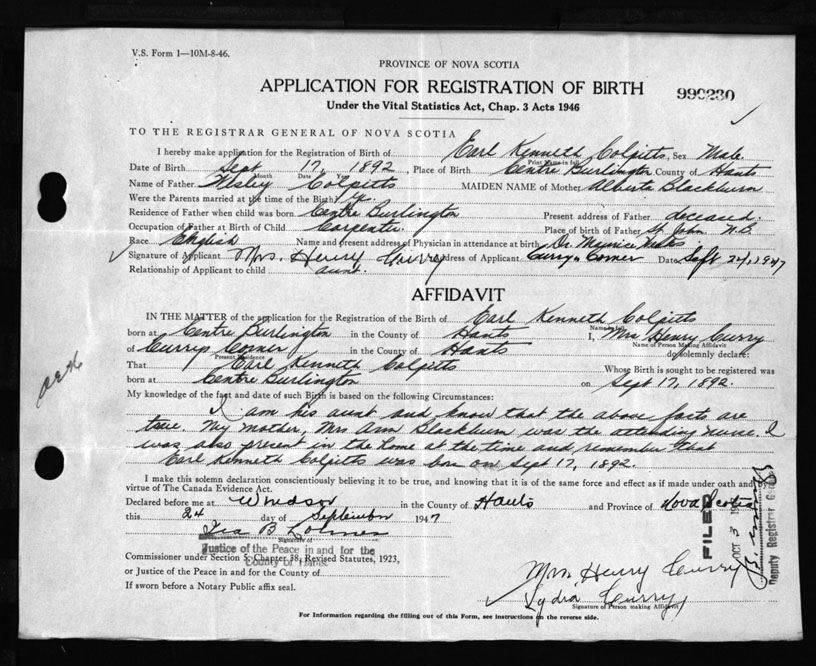 V.S. Form 1—10M-8-46.
PROVINCE OF NOVA SCOTIA
APPLICATION FOR REGISTRATION OF BIRTH
990230
Under the Vital Statistics Act, Chap. 3 Acts 1946
TO THE REGISTRAR GENERAL OF NOVA SCOTIA
I hereby make application for the Registration of Birth of Earl Kenneth Colpitts, Sex Male
Print Name in full
Date of Birth Sept 17, 1892, Place of Birth Centre Burlington County of Hants
Month Date Year
Name of Father Colpitts MAIDEN NAME of Mother Alberta Blackburn
Were the Parents married at the time of the Birth?
Residence of Father when child was born Centre Burlington Present address of Father deceased.
Occupation of Father at Birth of Child Carpenter Place of birth of Father St. John N.B.
Race English Name and present address of Physician in attendance at birth Dr.
Signature of Applicant Mrs. Henry Curry Address of Applicant Curry's Corner Date Sept 24, 1947
Relationship of Applicant to child aunt.
AFFIDAVIT
IN THE MATTER of the application for the Registration of the Birth of Earl Kenneth Colpitts
Name in full
born at Centre Burlington in the County of Hants I, Mrs Henry Curry
Name of Person Making Affidavit
of Currys Corner in the County of Hants do solemnly declare:
Present Residence
That Earl Kenneth Colpitts Whose Birth is sought to be registered was
born at Centre Burlington on Sept 17, 1892.
My knowledge of the fact and date of such Birth is based on the following Circumstances:
I am his aunt and know that the above facts are
true. My mother, Mrs Ann Blackburn was the attending nurse. I
was also present in the home at the time and remember that
Earl Kenneth Colpitts was born on Sept 17, 1892.
I make this solemn declaration conscientiously believing it to be true, and knowing that it is of the same force and effect as if made under oath and by
virtue of The Canada Evidence Act.
Declared before me at Windsor in the County of Hants and Province of Nova Scotia
this 24 day of September 1947
Signature of
Justice of the Peace in and for the
County of Hants.
Commissioner under Section 5, Chapter 38, Revised Statutes, 1923,
or Justice of the Peace in and for the County of
If sworn before a Notary Public affix seal.
Mrs. Henry Curry
Lydia Curry
Signature of Person making Affidavit
FILED
OCT 3
Deputy Registrar
For Information regarding the filling out of this Form, see instructions on the reverse side.